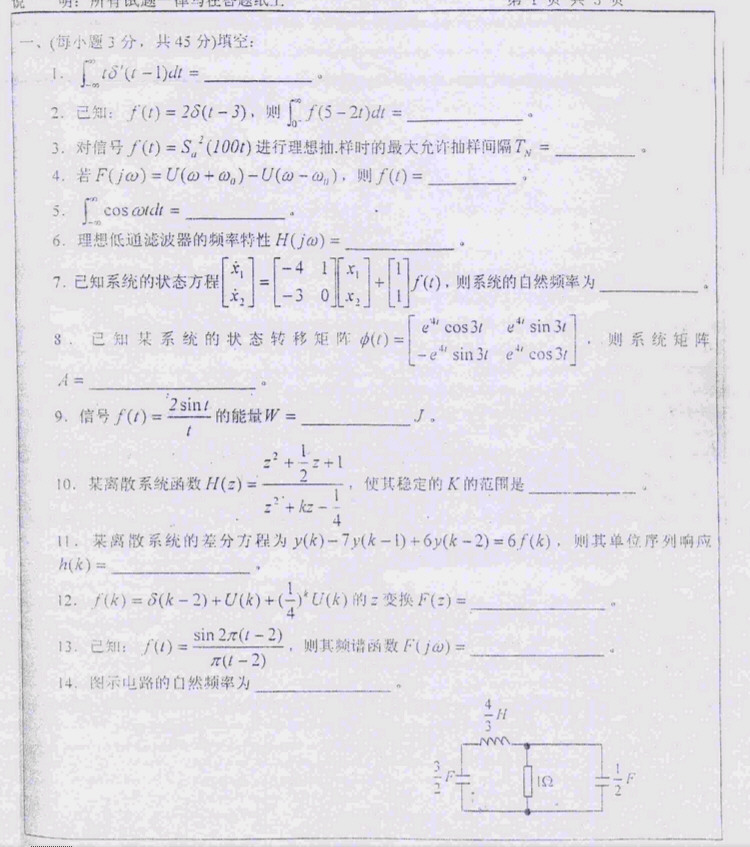 说 明：所有试题一律写在答题纸上 第 1 页 共 3 页
一、(每小题 3 分，共 45 分)填空:
1. ∫_{-∞}^{∞} tδ'(t－1)dt = ______。
2. 已知: f(t) = 2δ(t－3)，则 ∫_{0^-}^{∞} f(5－2t)dt = ______。
3. 对信号 f(t) = S_a^2(100t) 进行理想抽.样时的最大允许抽样间隔 T_N = ______。
4. 若 F(jω) = U(ω+ω_0)－U(ω－ω_0)，则 f(t) = ______。
5. ∫_{-∞}^{∞} cos ωtdt = ______。
6. 理想低通滤波器的频率特性 H(jω) = ______。
7. 已知系统的状态方程 [ẋ_1; ẋ_2] = [－4 1; －3 0][x_1; x_2] + [1; 1] f(t)，则系统的自然频率为 ______。
8. 已知某系统的状态转移矩阵 φ(t) = [e^{4t} cos 3t e^{4t} sin 3t; －e^{4t} sin 3t e^{4t} cos 3t]，则系统矩阵
A = ______。
9. 信号 f(t) = \frac{2 sin t}{t} 的能量W = ______ J。
10. 某离散系统函数 H(z) = \frac{z^2+\frac{1}{2}z+1}{z^2+kz－\frac{1}{4}}，使其稳定的 K 的范围是 ______。
11. 某离散系统的差分方程为 y(k)－7y(k－1)+6y(k－2)=6f(k)，则其单位序列响应
h(k) = ______。
12. f(k) = δ(k－2)+U(k)+(\frac{1}{4})^k U(k) 的 z 变换 F(z) = ______。
13. 已知: f(t) = \frac{sin 2π(t－2)}{π(t－2)}，则其频谱函数 F(jω) = ______.
14. 图示电路的自然频率为 ______。
\frac{4}{3} H
\frac{3}{2} F 1Ω \frac{1}{2} F